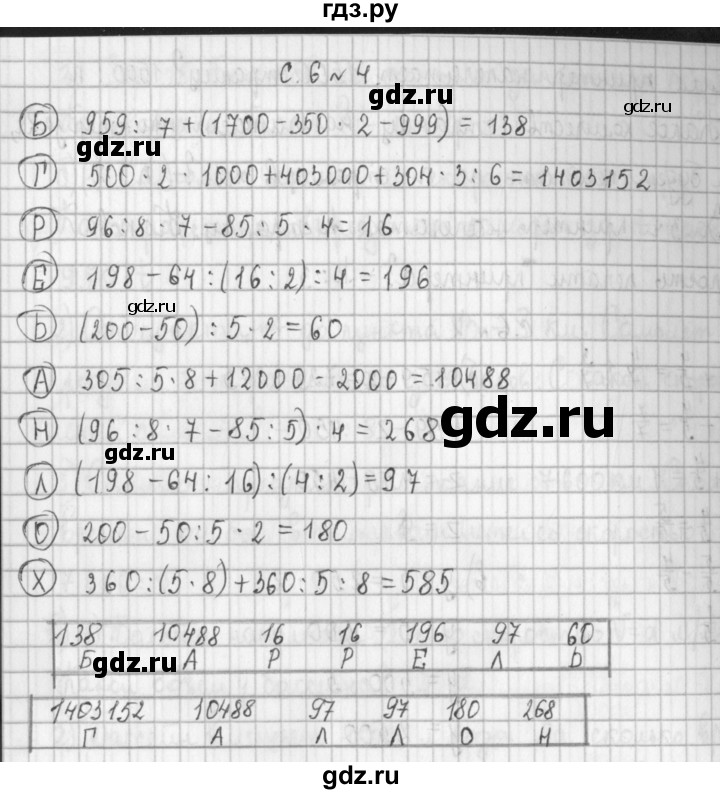 гдз.ру
С. 6 № 4.
gdz.ru
gdz.ru
Б 959 : 7 + (1700 - 350 · 2 - 999) = 138
gdz.ru
Г 500 · 2 · 1000 + 403000 + 304 · 3 : 6 = 1403152
Р 96 : 8 · 7 - 85 : 5 · 4 = 16
Е 198 - 64 : (16 : 2) : 4 = 196
gdz.ru
Ь (200 - 50) : 5 · 2 = 60
А 305 : 5 · 8 + 12000 - 2000 = 10488
Н (96 : 8 · 7 - 85 : 5) · 4 = 268
gdz.ru
gdz.ru
Л (198 - 64 : 16) : (4 : 2) = 97
О 200 - 50 : 5 · 2 = 180
Х 360 : (5 · 8) + 360 : 5 : 8 = 585
138 10488 16 16 196 97 60
Б А Р Р Е Л Ь
gdz.ru
1403152 10488 97 97 180 268
Г А Л Л О Н
gdz.ru